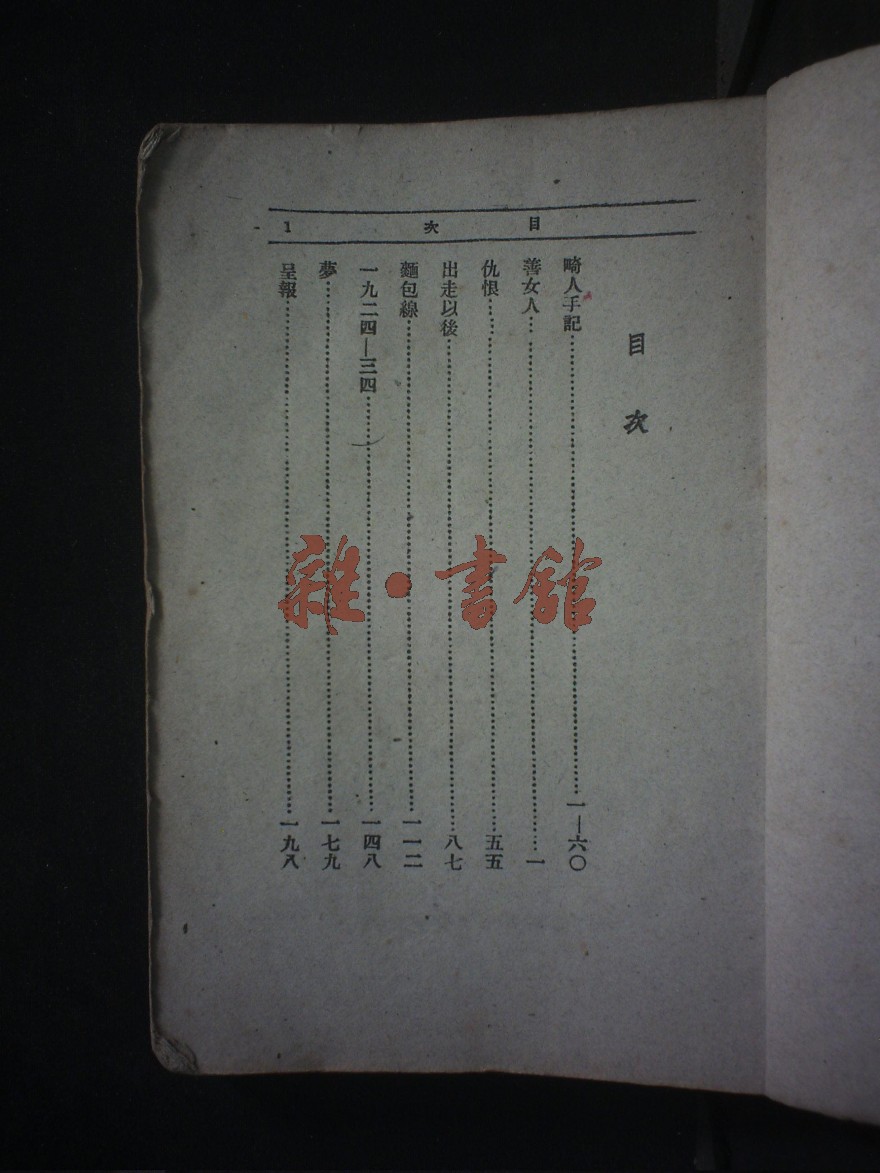 目次 1
目次
畸人手記……一—六〇
善女人……一
仇恨……五五
出走以後……八七
麵包線……一一二
一九二四—三四……一四八
夢……一七九
呈報……一九八
雜·書館